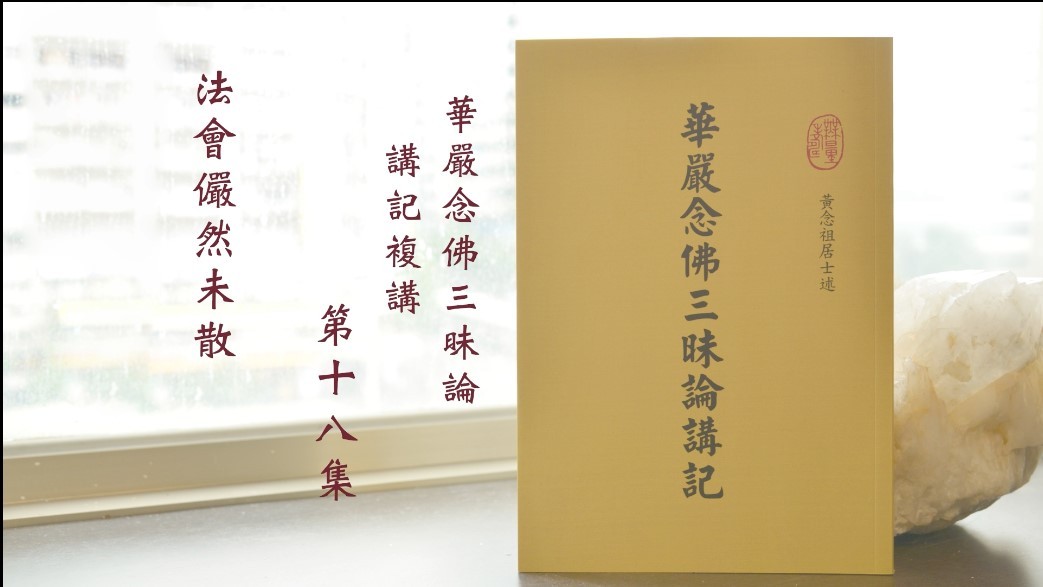 華嚴念佛三昧論講記
黃念祖居士述
華嚴念佛三昧論
講記複講
第十八集
法會儼然未散